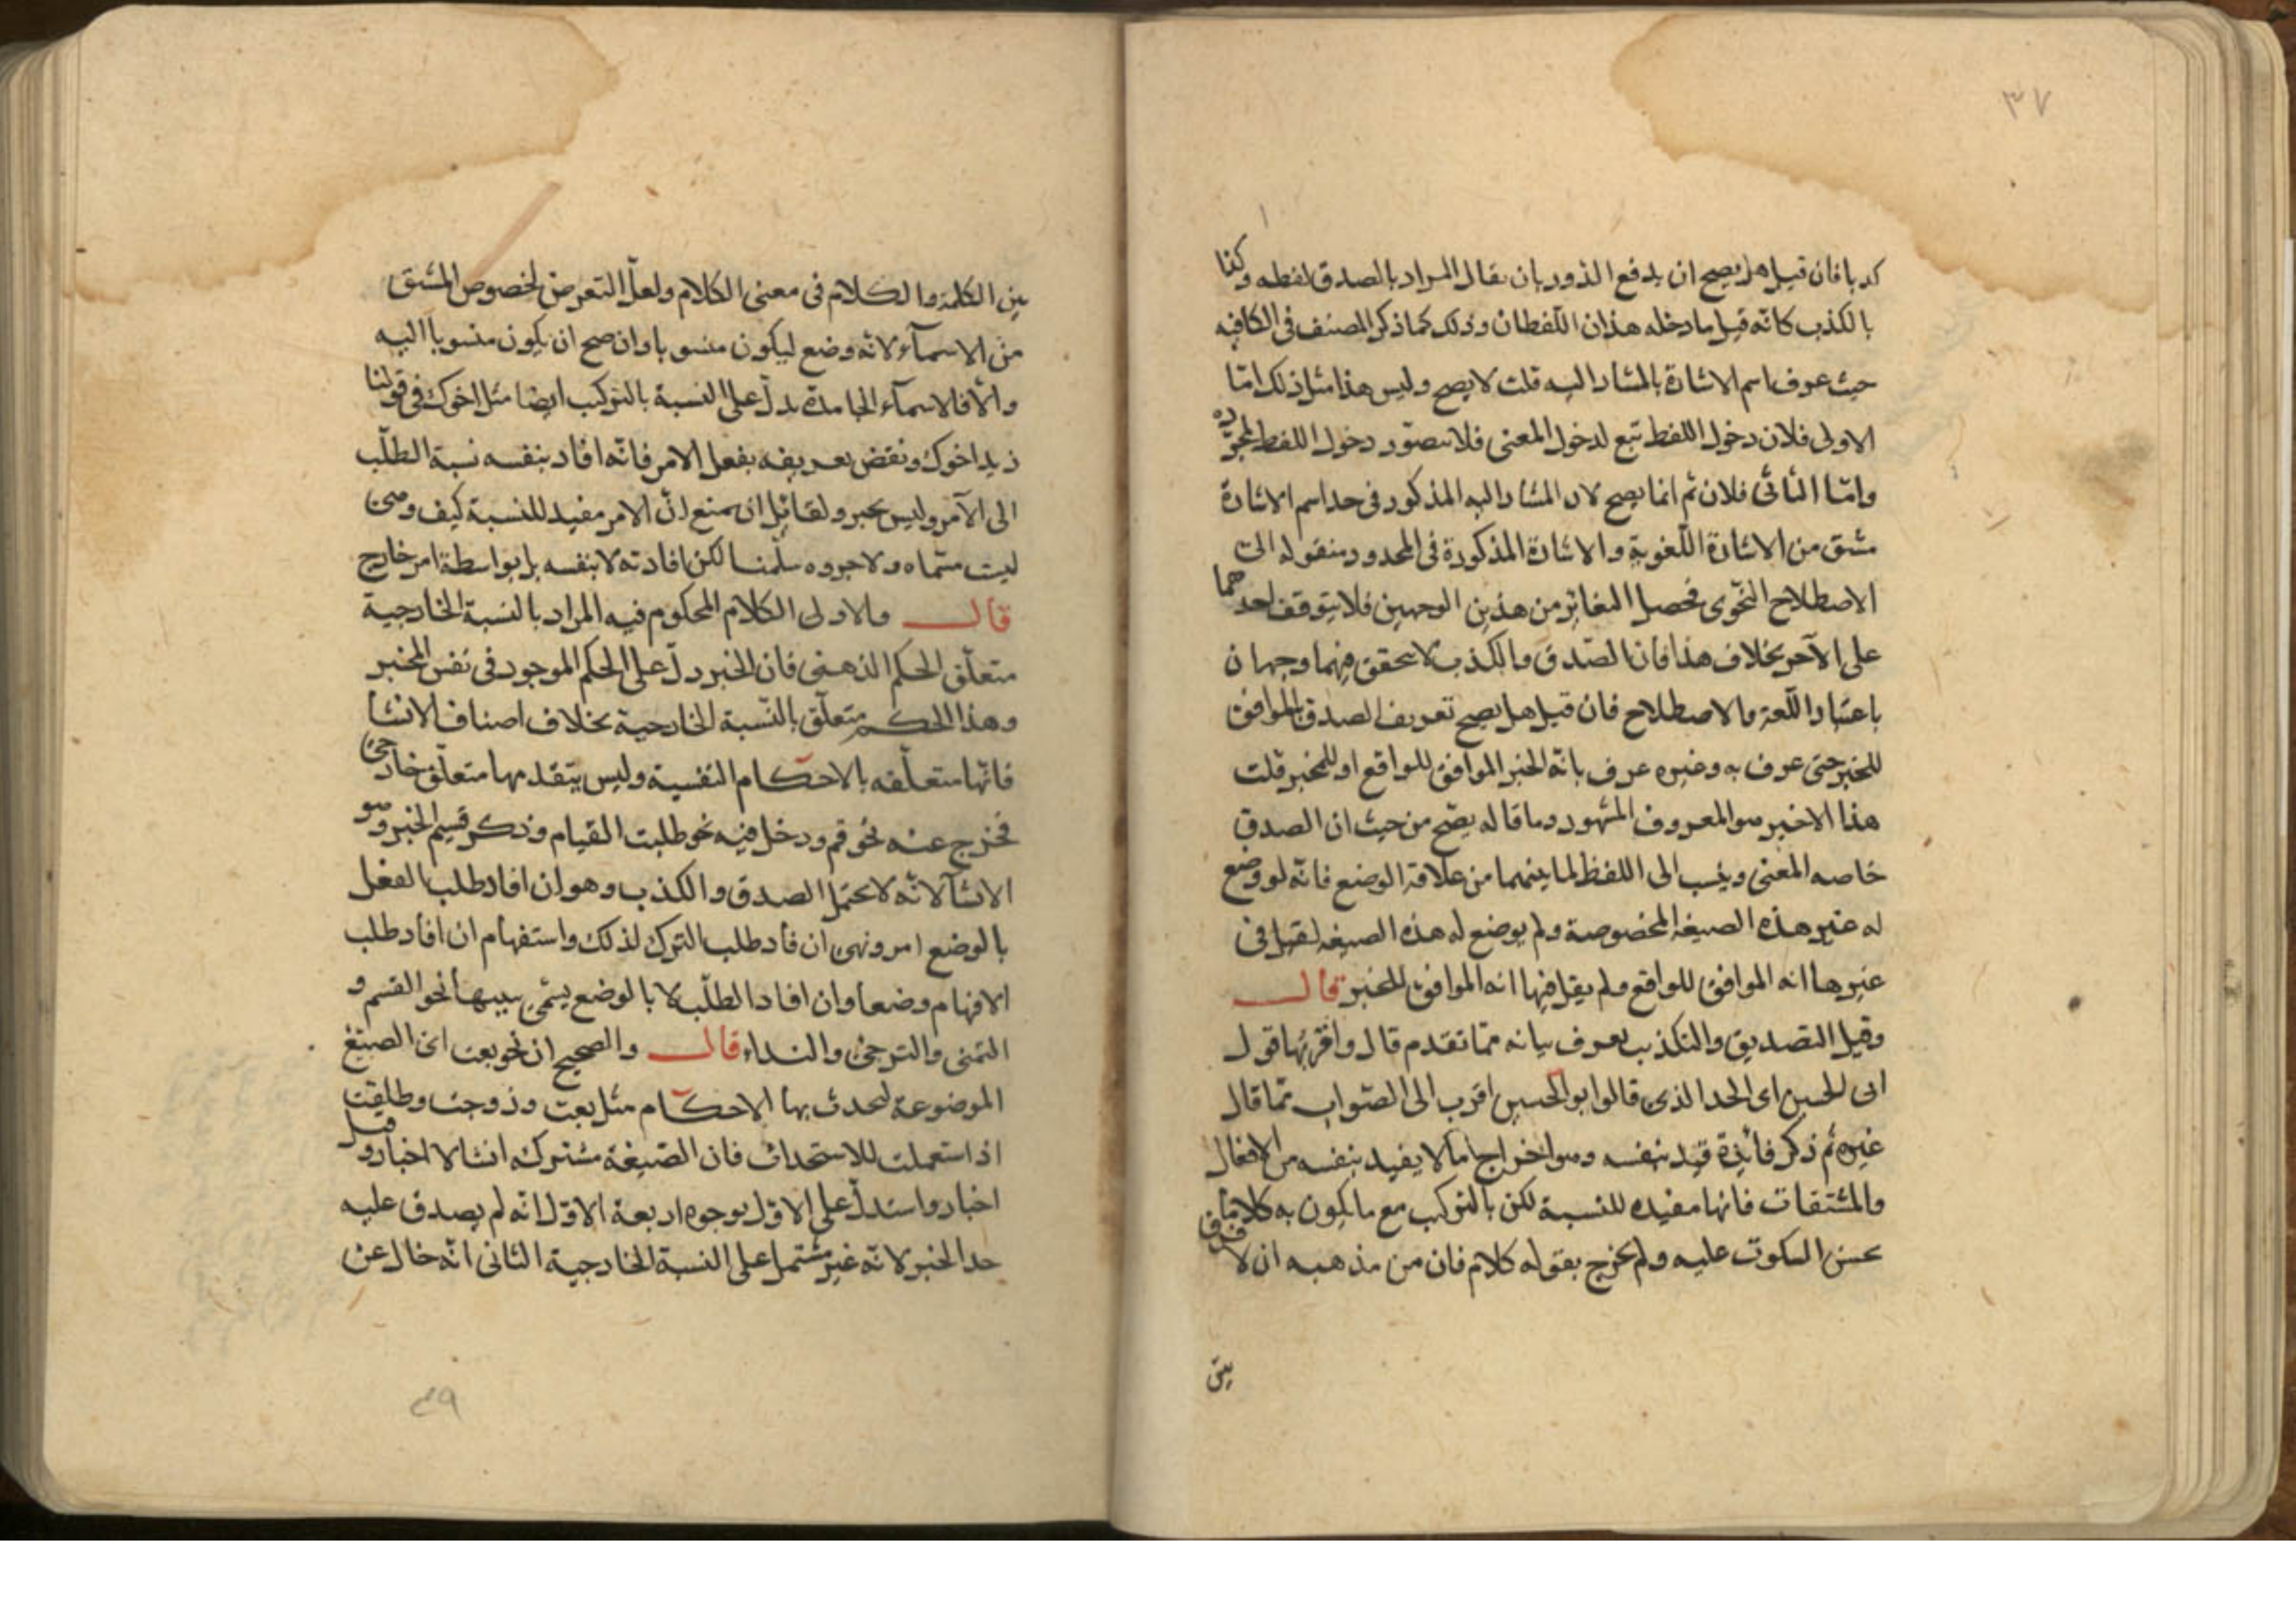 ٣٧
كذبا فان قيل هل يصح ان يدفع الدور بان يقال المراد بالصدق لفظه وكذا
بالكذب كانه قيل ما دخله هذان اللفظان وذلك كما ذكر المصنف فى الكافيه
حيث عرف اسم الاشارة بالمشار اليه قلت لا يصح وليس هذا مثل ذلك امّا
الاولى فلان دخول اللفظ تبع لدخول المعنى فلا يتصوّر دخول اللفظ لمجرّده
وامّا الثانى فلان ثم انما يصح لان المشار اليه المذكور فى حد اسم الاشارة
مشتق من الاشارة اللّغوية والاشارة المذكورة فى المحدود منقوله الى
الاصطلاح النحّوى فحصل التغاير من هذين الوجهين فلا يتوقف احدهما
على الآخر بخلاف هذا فان الصّدق والكذب لا يتحقق فيهما وجهان
باعتبار اللّغة والاصطلاح فان قيل هل يصح تعريف الصدق بالموافق
للمخبر حتى عرف به وغيره عرف بانّه الخبر الموافق للواقع او للمخبر قلت
هذا الاخير هو المعروف المشهور وما قاله يصّح من حيث ان الصدق
خاصه المعنى وينسب الى اللفظ لما بينهما من علاقة الوضع فانّه لو وضع
له غير هذه الصيغة المخصوصة ولم يوضع له هذه الصيغه لقيل فى
غيرها انه الموافق للواقع ولم يقل فيها انه الموافق للمخبر قال
وقيل التصديق والتكذيب يعرف بيانه ممّا تقدم قال واقربها قول
ابى الحسين اى الحد الذى قاله ابو الحسين اقرب الى الصّواب ممّا قال
غيره ثم ذكر فائدة قيد بنفسه وهو اخراج ما لا يفيد بنفسه من الافعال
والمشتقات فانها مفيده للنسبة لكن بالتركيب مع ما يكون به كلاما
يحسن السكوت عليه ولم يخرج بقوله كلام فان من مذهبه ان لا فرق
بين
بين الكلمة والكلام فى معنى الكلام ولعلّ التعرض لخصوص المشتق
من الاسمآء لانّه وضع ليكون منسوبا وان صح ان يكون منسوبا اليه
والّا فالاسمآء الجامدة يدلّ على النسبة بالتركيب ايضا مثل اخوك فى قولنا
زيد اخوك ونقض تعريفه بفعل الامر فانّه افاد بنفسه نسبة الطلّب
الى الآمر وليس بخبر ولقائل ان يمنع انّ الامر مفيد للنسبة كيف وهى
ليست مسّماه ولا جزوه سلّمنا لكن افادته لا بنفسه بل بواسطة امر خارج
قال والاولى الكلام المحكوم فيه المراد بالنسبة الخارجية
متعلّق الحكم الذهنى فان الخبر دلّ على الحكم الموجود فى نفس المخبر
وهذا الحكم متعلّق بالنّسبة الخارجية بخلاف اصناف الانشا
فانّها متعلّقه بالاحكام النفسية وليس يتقدمها متعلّق خارجى
فخرج عنه نحو قم ودخل فيه نحو طلبت القيام وذكر قسيم الخبر وهو
الانشآ لانّه لا يحتمل الصدق والكذب وهو ان افاد طلب الفعل
بالوضع امر ونهى ان فاد طلب الترك لذلك واستفهام ان افاد طلب
الافهام وضعا وان افاد الطلّب لا بالوضع يسّمى تنبيها نحو القسم و
التمنى والترجى والنداء قال والصحيح ان نحو بعت اى الصيّغ
الموضوعة لتحدث بها الاحكام مثل بعت وزوجت وطلقت
اذ استعملت للاستحداث فان الصّيغة مشتركه انشا لا اخبار وقيل
اخبار واستدلّ على الاوّل بوجوه اربعة الاوّل انه لم يصدق عليه
حد الخبر لانّه غير مشتمل على النسبة الخارجية الثانى انّه خال عن